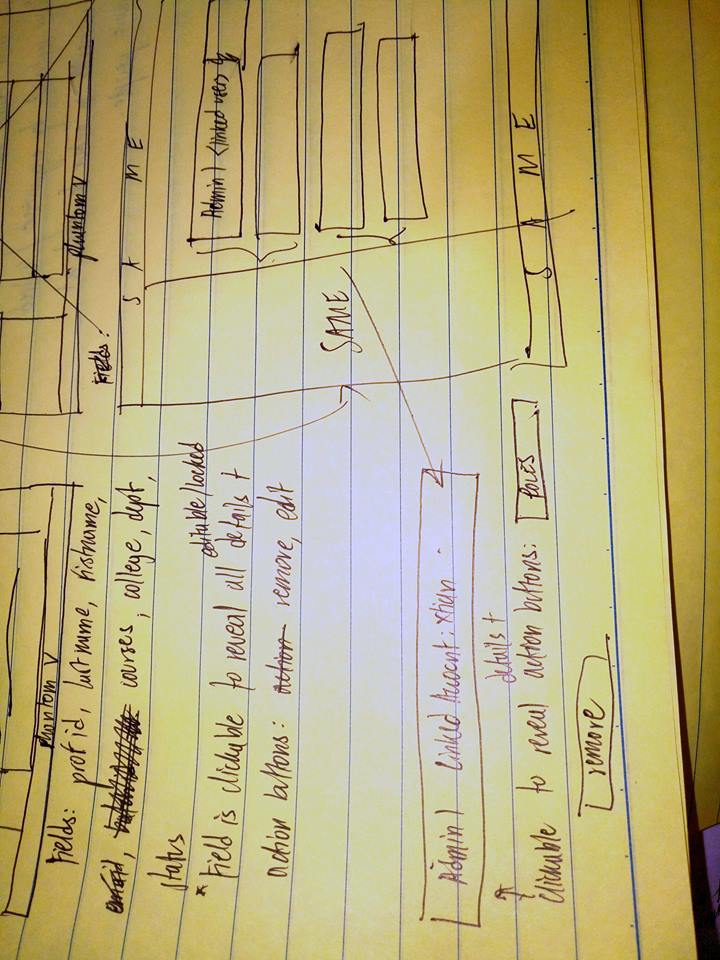 phantom V
Fields: prof id, lastname, firstname,
courses, college, dept,
status
editable/locked
* Field is clickable to reveal all details +
action buttons: action remove, edit
Admin 1 Linked Account: xtian
details +
clickable to reveal action buttons: ROLES
remove
phantom V
Fields:
S A M E
Admin 1 <linked users>
SAME
S A M E